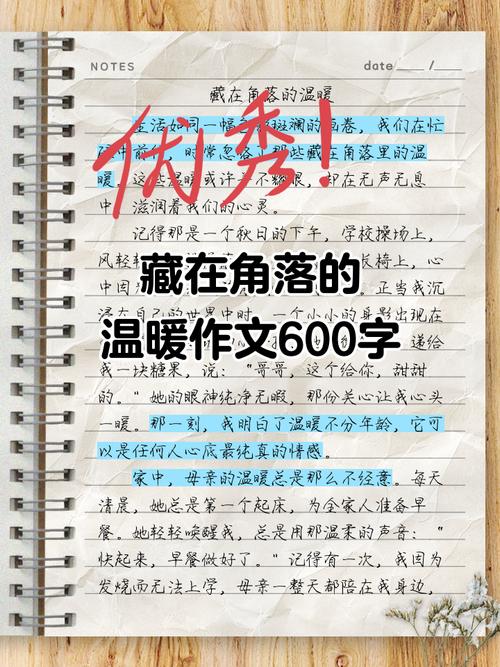 NOTES
date ____ / ____
藏在角落的温暖
优秀!
生活如同一幅色彩斑斓的画卷，我们在忙
碌中前行，时常忽略了那些藏在角落里的温
暖。这些温暖或许并不耀眼，却在无声无息
中，滋润着我们的心灵。
记得那是一个秋日的下午，学校操场上，
风轻轻 长椅上，心
中因 正当我沉
浸在自己的世界中时，一个小小的身影出现在
递给
我一块糖果，说："哥哥，这个给你，甜甜
的。"她的眼神纯净无暇，那份关心让我心头
一暖。那一刻，我明白了温暖不分年龄，它可
以是任何人心底最纯真的情感。
家中，母亲的温暖总是那么不经意。每天
清晨，她总是第一个起床，为全家人准备早
餐。她轻轻唤醒我，总是用那温柔的声音："
快起来，早餐做好了。"记得有一次，我因为
发烧而无法上学，母亲一整天都陪在我身边，
藏在角落的
温暖作文600字